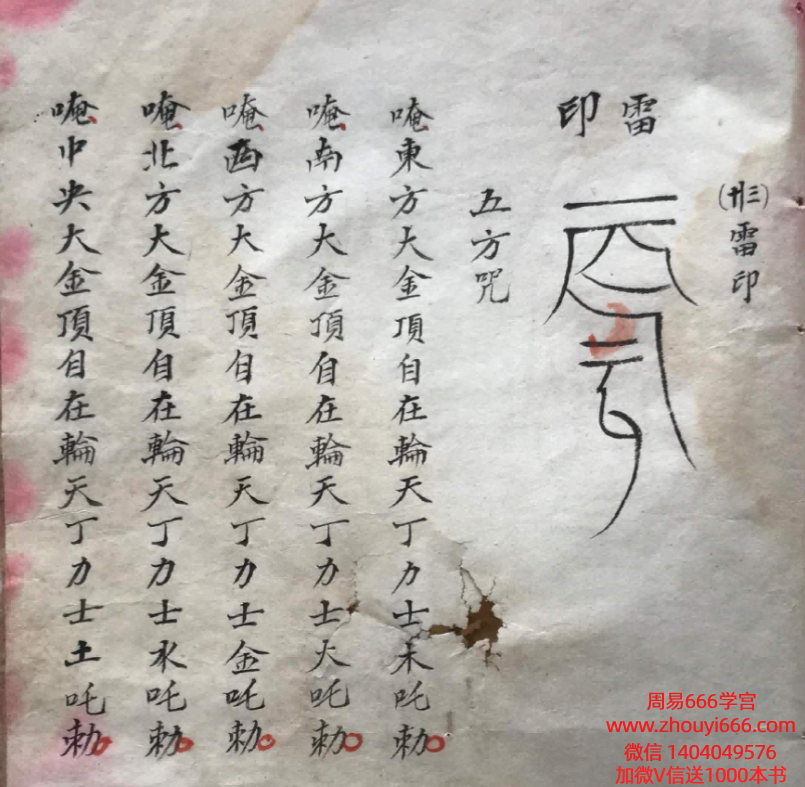 (卅三)雷印
雷印
五方咒
唵東方大金頂自在輪天丁力士木吒勅
唵南方大金頂自在輪天丁力士火吒勅
唵西方大金頂自在輪天丁力士金吒勅
唵北方大金頂自在輪天丁力士水吒勅
唵中央大金頂自在輪天丁力士土吒勅
周易666学宫
www.zhouyi666.com
微信 1404049576
加微V信送1000本书